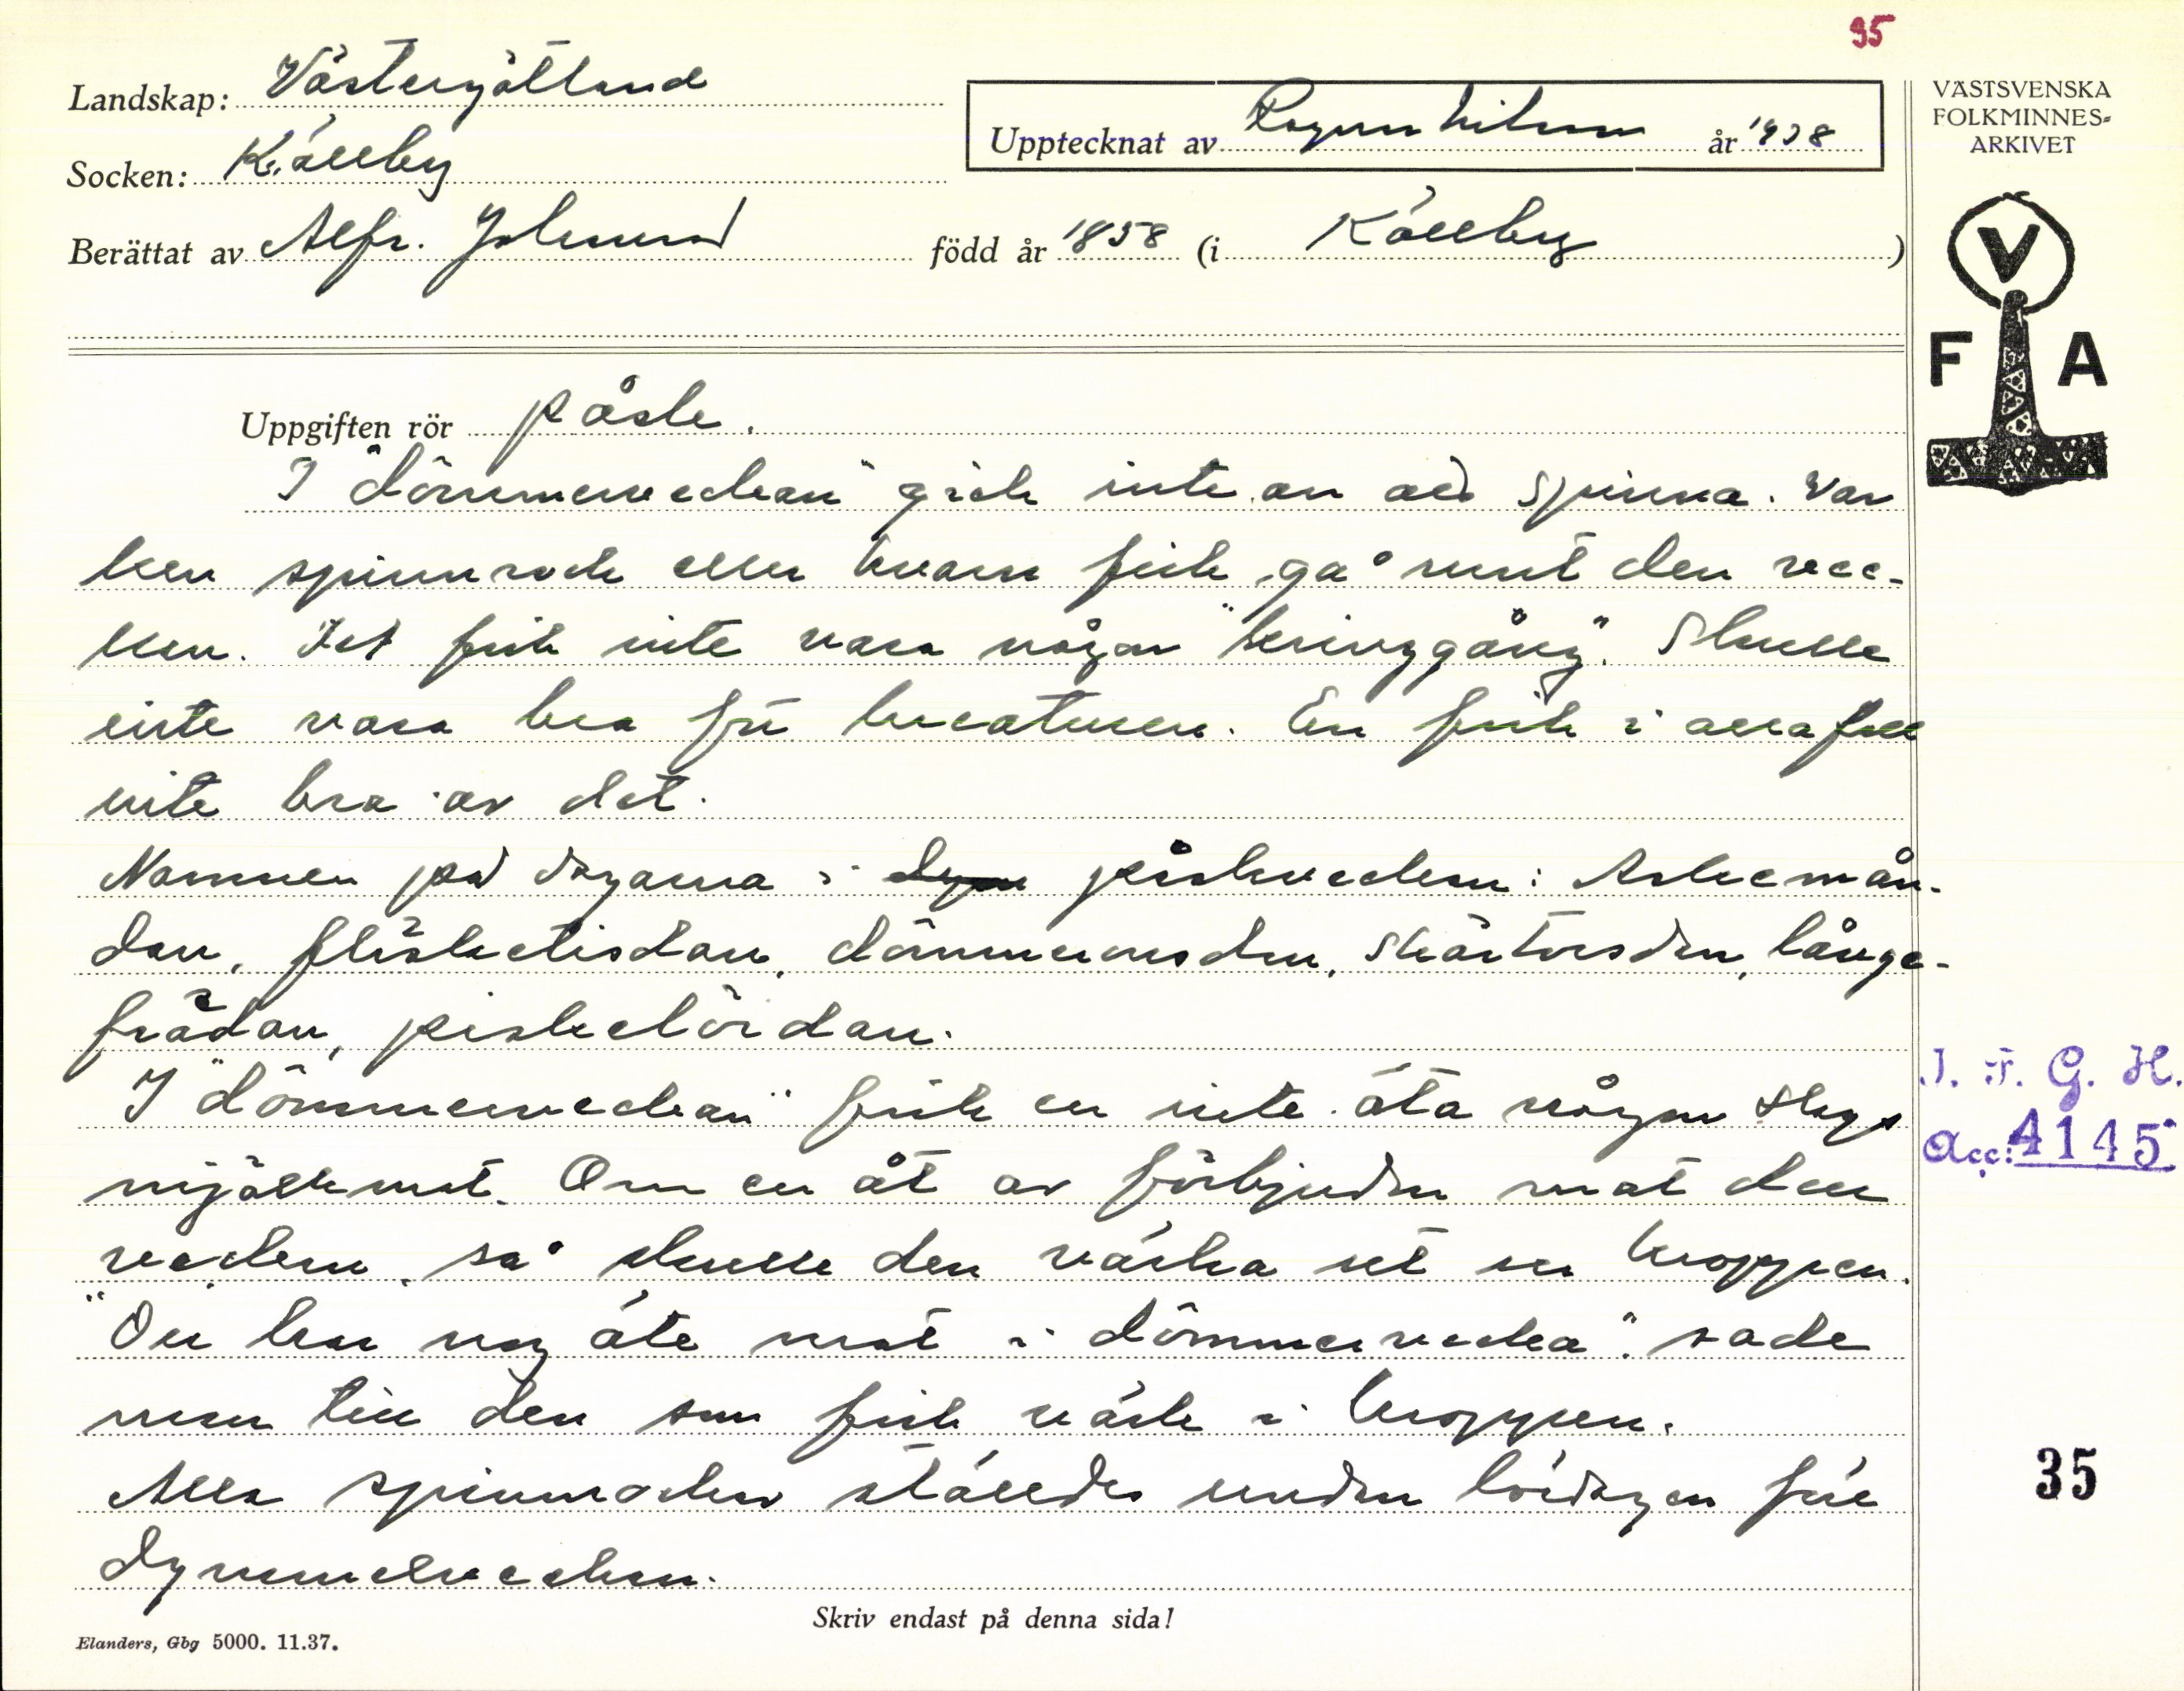 95
Landskap: Västergötland
Upptecknat av Ragnar Nilsson år 1938
VÄSTSVENSKA
FOLKMINNES-
ARKIVET
Socken: Källby
Berättat av Alfr. Johansson född år 1858 (i Källby)
V
F A
Uppgiften rör påsk.
I "dömmerveckan" gick inte an att spinna. Var
ken spinnrock eller kvarn fick gå runt den vec-
kan. Det fick inte vara någon "kringgång". Skulle
inte vara bra för kreaturen. En fick i alla fall
inte bra av det.
Namnen på dagarna i påskveckan: Askemån-
dan, flisketisdan, dömmeronsdan, skärtorsdan, långe-
frädan, påskelördan.
I "dömmerveckan" fick en inte äta någon slags
mjölkmat. Om en åt av förbjuden mat den
veckan, så skulle den värka ut ur kroppen.
"Du har nog äte mat i dömmervecka". sade
man till den som fick värk i kroppen.
Alla spinnrockar ställdes undan lördagen före
dymmelveckan.
J. F. G. H.
Acc: 4145
35
Skriv endast på denna sida!
Elanders, Gbg 5000. 11.37.